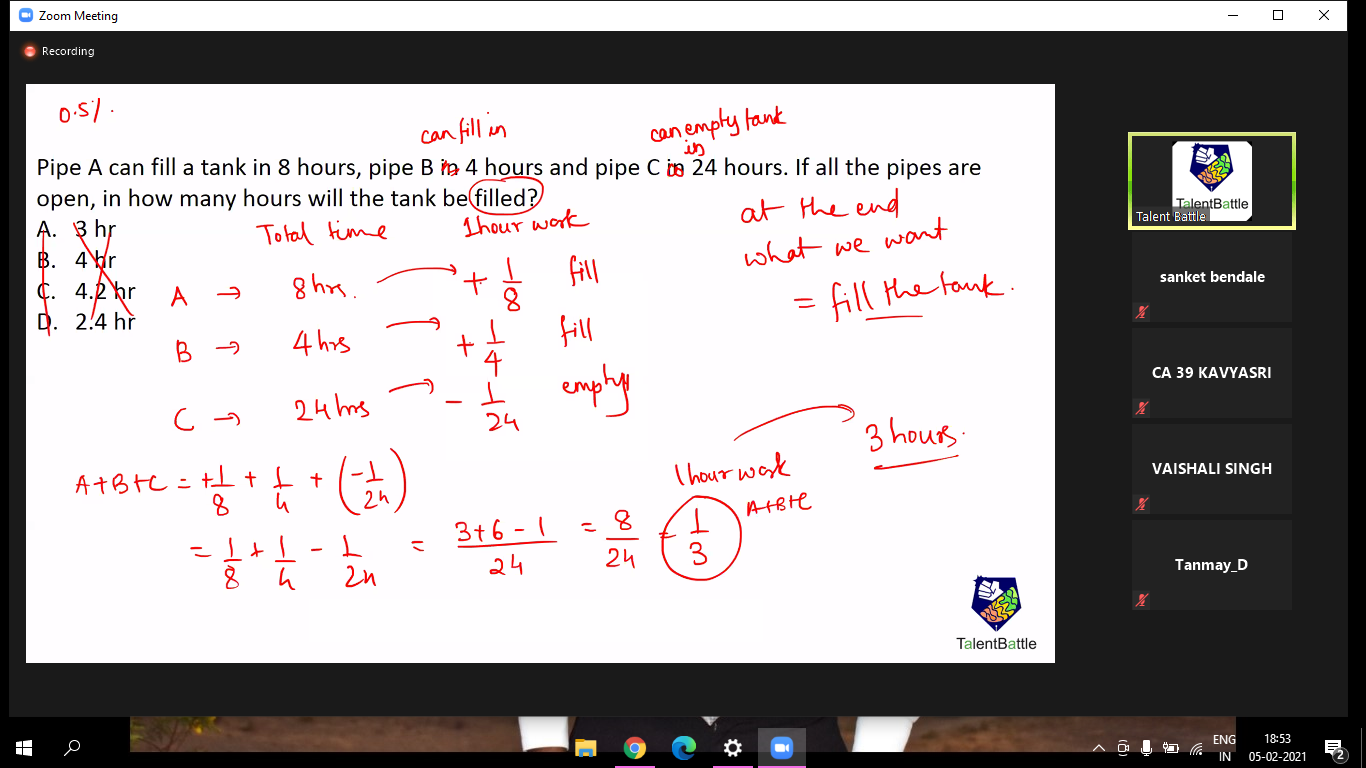 Zoom Meeting
Recording
0.5%.
can fill in
can empty tank
in
Pipe A can fill a tank in 8 hours, pipe B in 4 hours and pipe C in 24 hours. If all the pipes are
open, in how many hours will the tank be filled?
A. 3 hr
B. 4 hr
C. 4.2 hr
D. 2.4 hr
Total time 1 hour work
A → 8 hrs. + 1/8 fill
B → 4 hrs + 1/4 fill
C → 24 hrs - 1/24 empty
at the end
what we want
= fill the tank.
A+B+C = +1/8 + 1/4 + (-1/24)
= 1/8 + 1/4 - 1/24 = 3+6-1/24 = 8/24 = 1/3
1 hour work
A+B+C
3 hours.
TalentBattle
TalentBattle
Talent Battle
sanket bendale
CA 39 KAVYASRI
VAISHALI SINGH
Tanmay_D
ENG
IN
18:53
05-02-2021
2